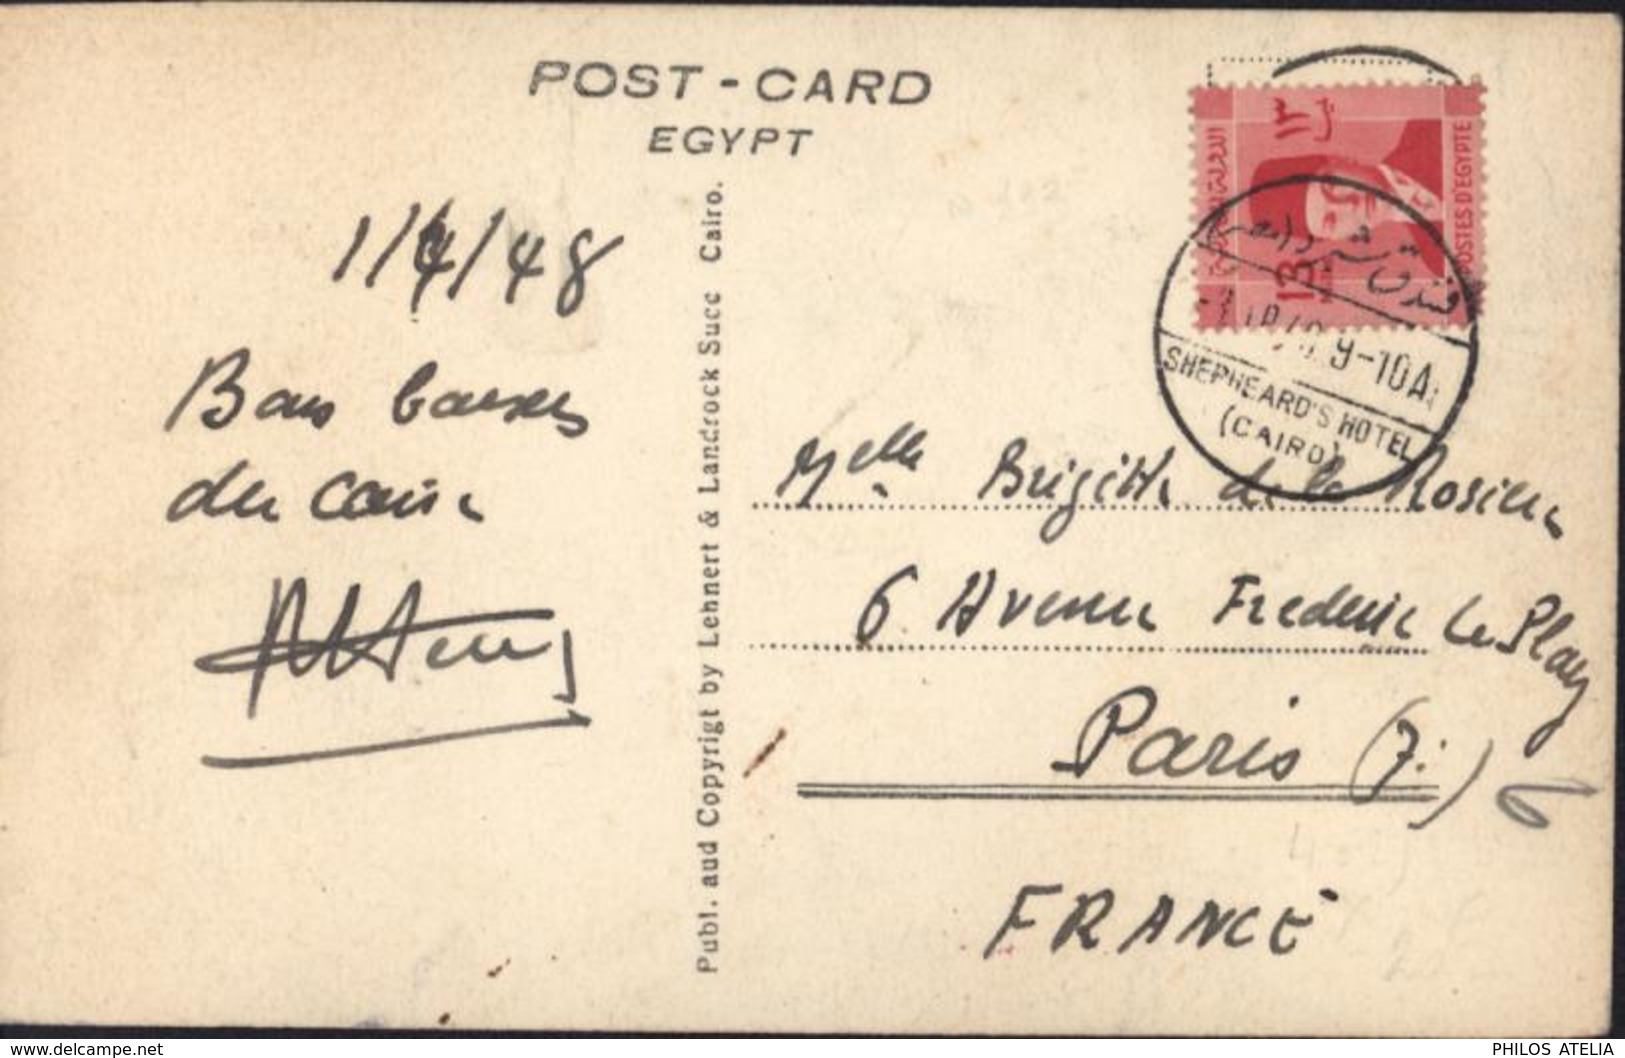 POST - CARD
EGYPT
1/4/48
Bons baisers
du Caire
Publ. aud Copyrigt by Lehnert & Landrock Succ Cairo.
POSTES D'EGYPTE
13
١٣
9-10A
SHEPHEARD'S HOTEL
(CAIRO)
Melle Brigitte de la Rosière
6 Avenue Frederic Le Play
Paris (7:)
FRANCE
delcampe.net
PHILOS ATELIA